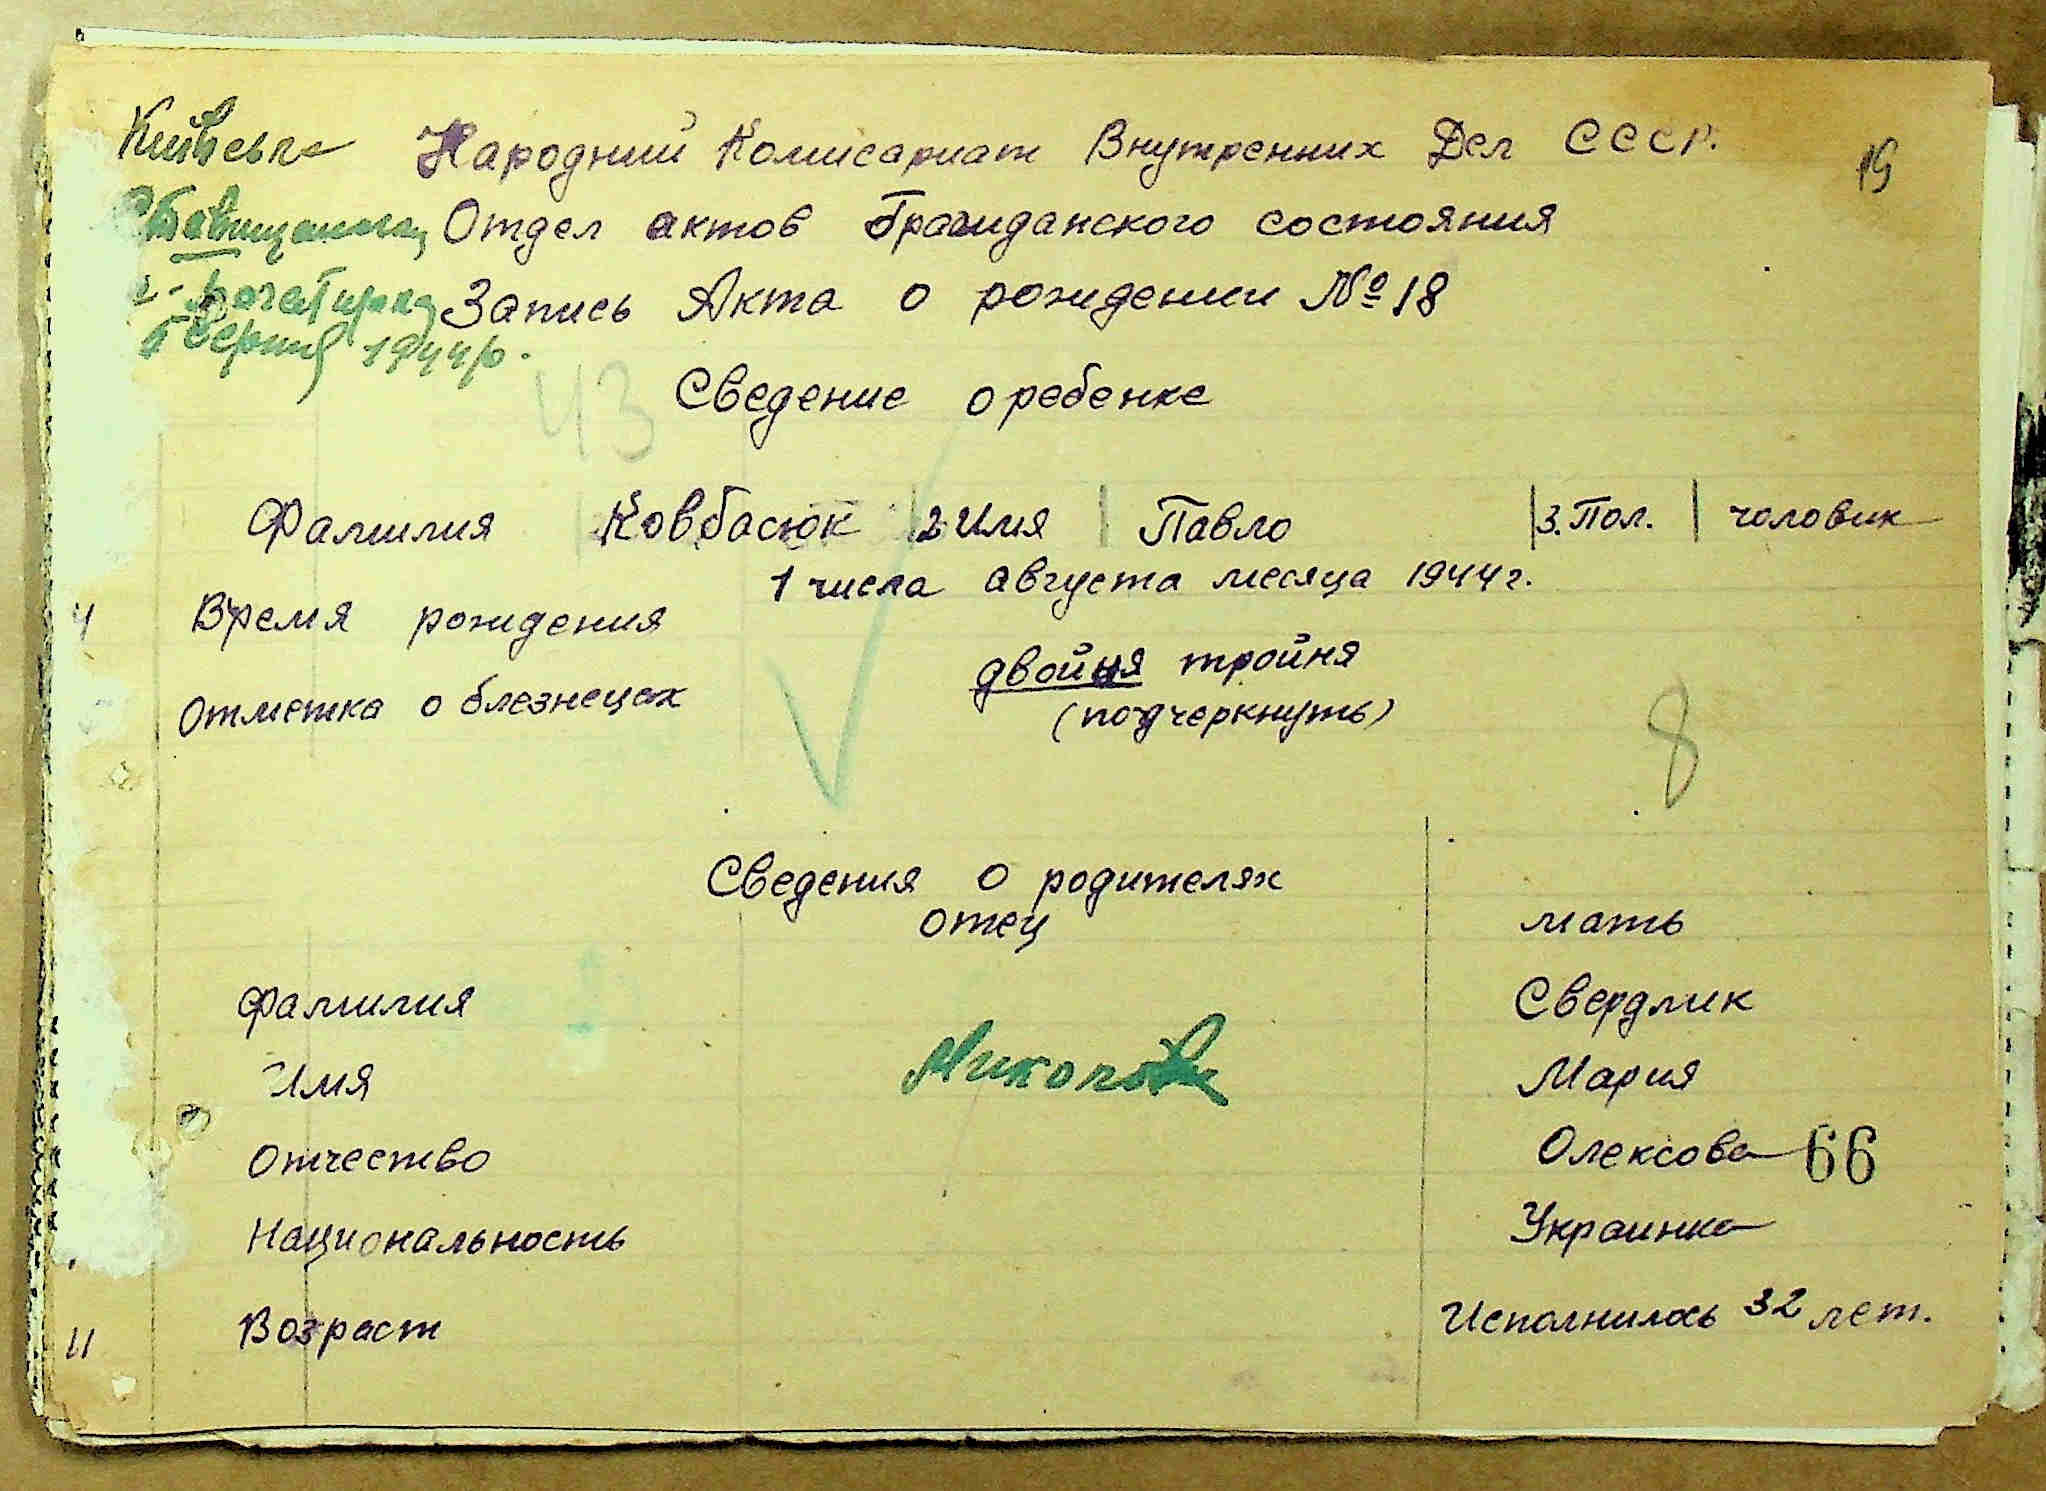 Київська
Народний Комисариат Внутренних Дел СССР.
19
Ставищанског
Отдел актов Гражданского состояния
Запись Акта о рождении № 18
серпня 1944 р.
43
Сведение о ребенке
Фамилия Ковбасюк 2 Имя Павло 3. Пол. чоловик
1 числа августа месяца 1944 г.
4 Время рождения
двойня тройня
Отметка о блезнецах
(подчеркнуть)
8
Сведения о родителях
отец мать
Фамилия Свердлик
Имя Мария
Отчество Олексова 66
Национальность Украинка
11 Возраст Исполнилось 32 лет.